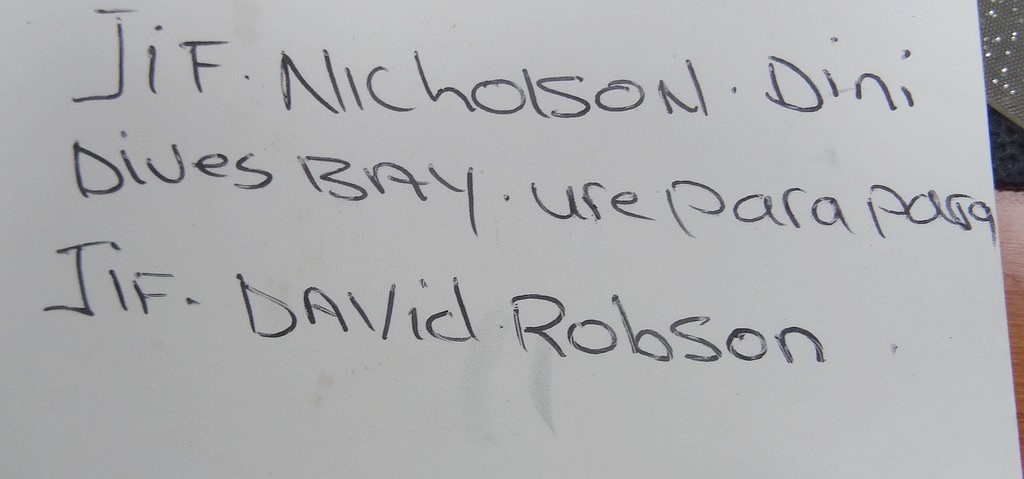 JiF. NICholsON. Dini
Dives BAY. ureparapara
JIF. DAVid Robson